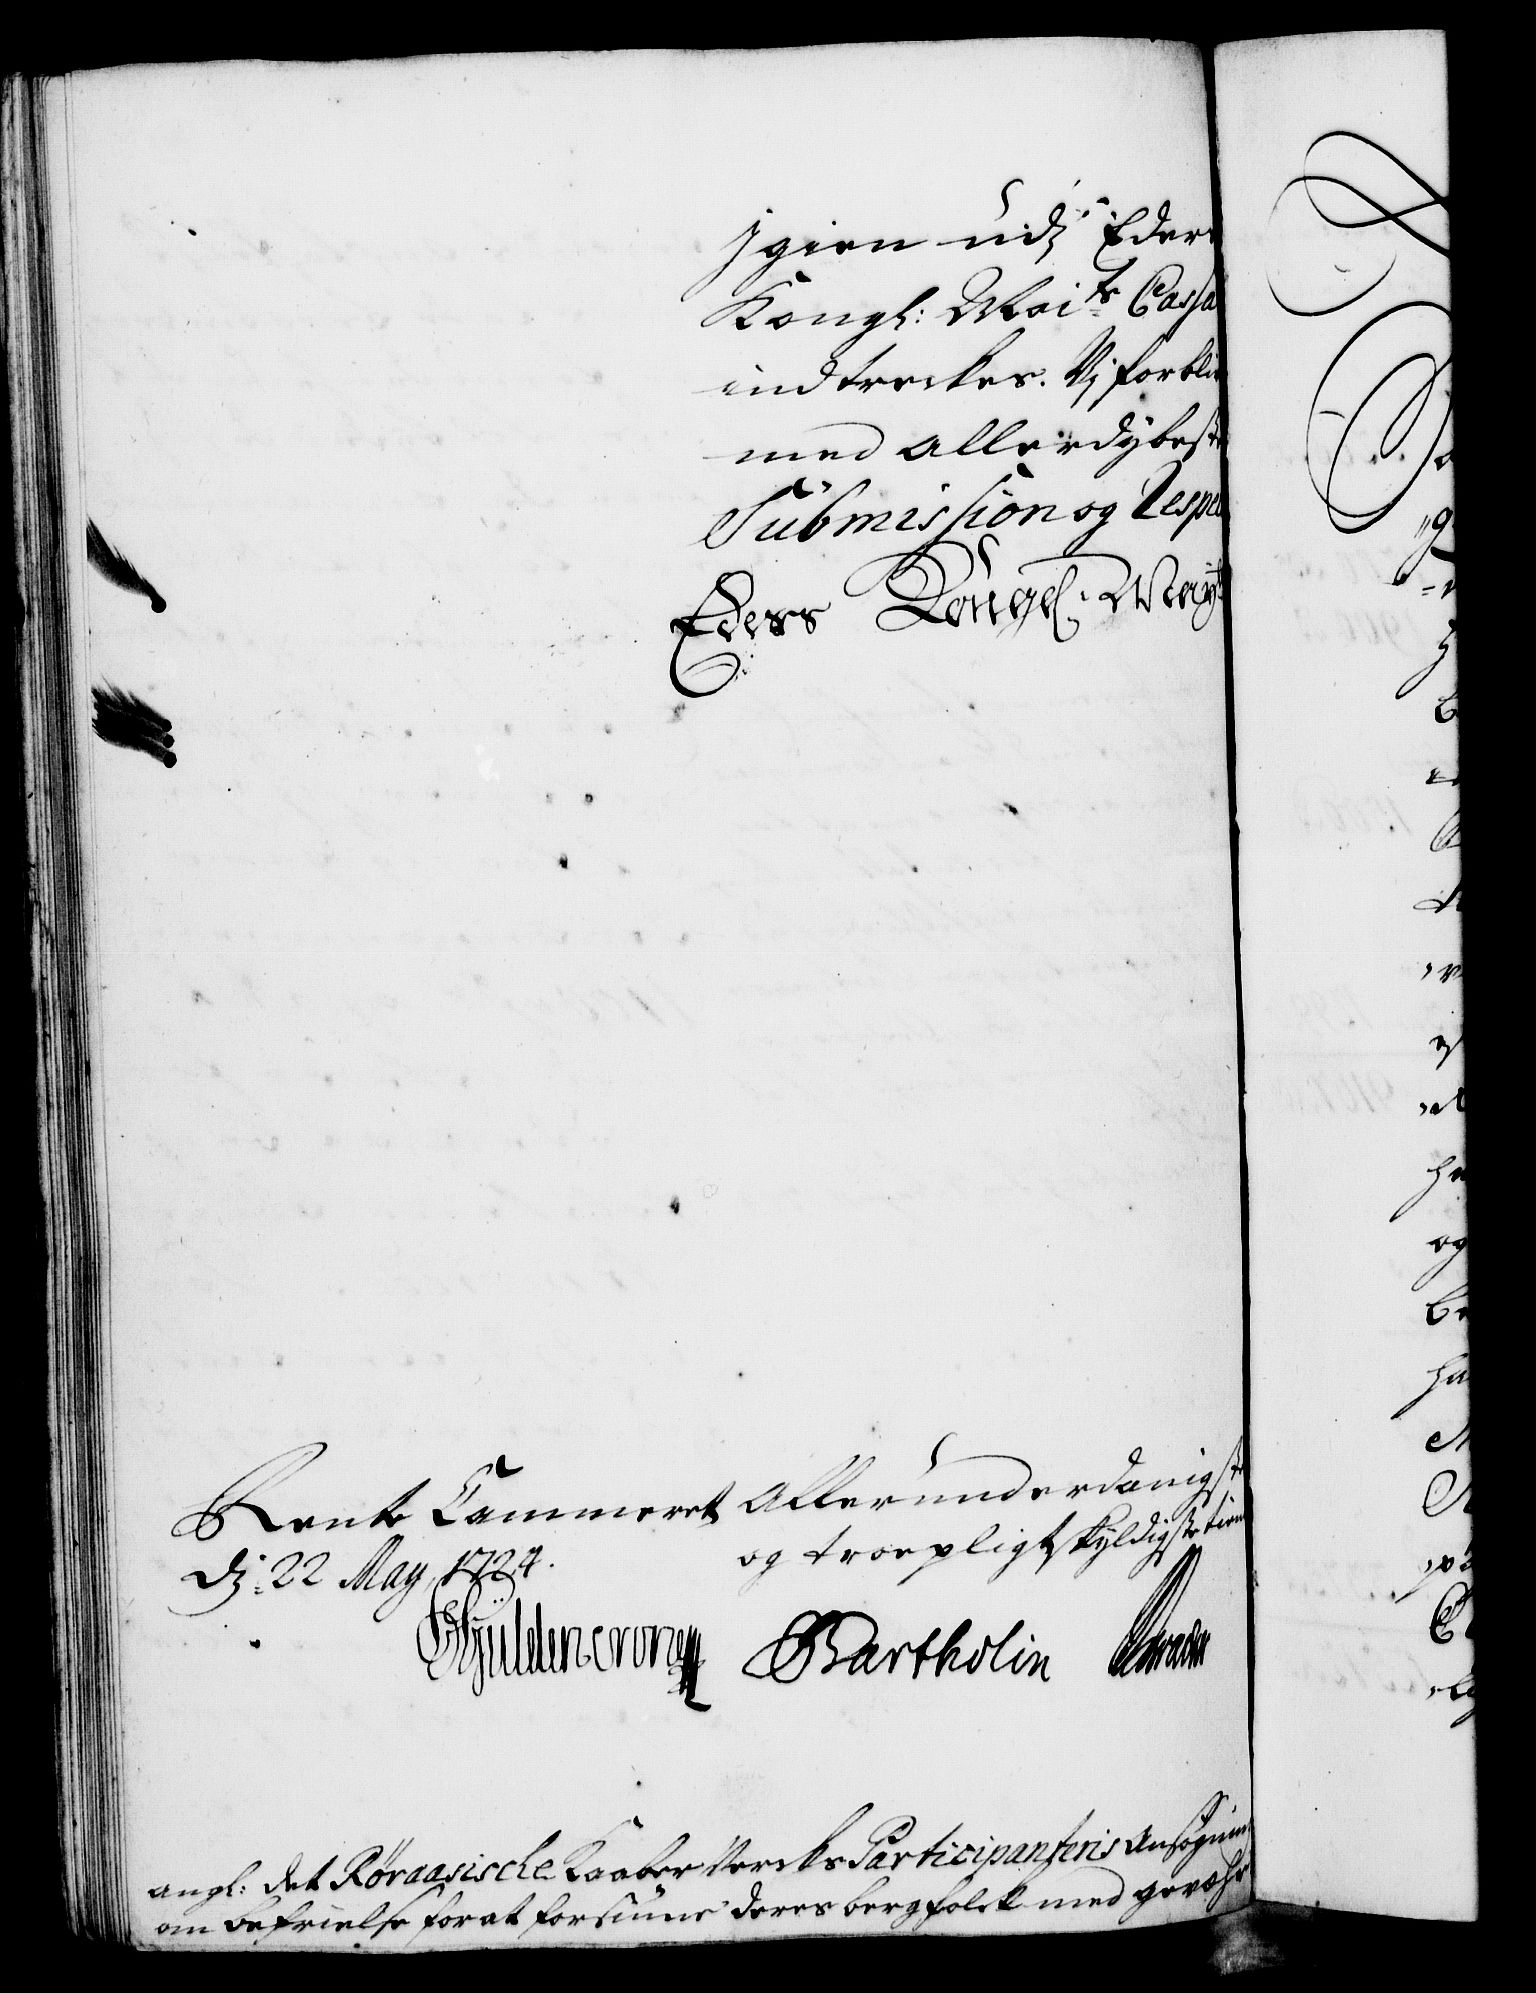 Igien udj Eders
Kongl: Maits Cassa
indtreckes. Vj forbli
med allerdybeste
Submission og Respe
Eders Kongel: Mayts
Rente Cammeret
dj: 22 May, 1724.
Allerunderdanigste
og troepligtskyldigste tien
Gyldencrone
Bartholin
angl: det Røraasische Kaaber Vercks Participanteris Ansøgning
om befrielse for at forsiune deres bergfolck med gevæhr